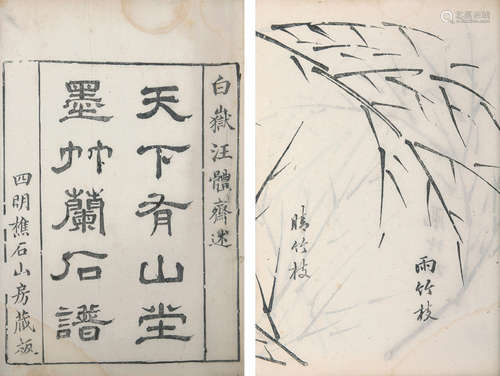 白嶽汪體齋述
天下有山堂
墨竹蘭石譜
四明樵石山房藏板
雨竹枝
晴竹枝